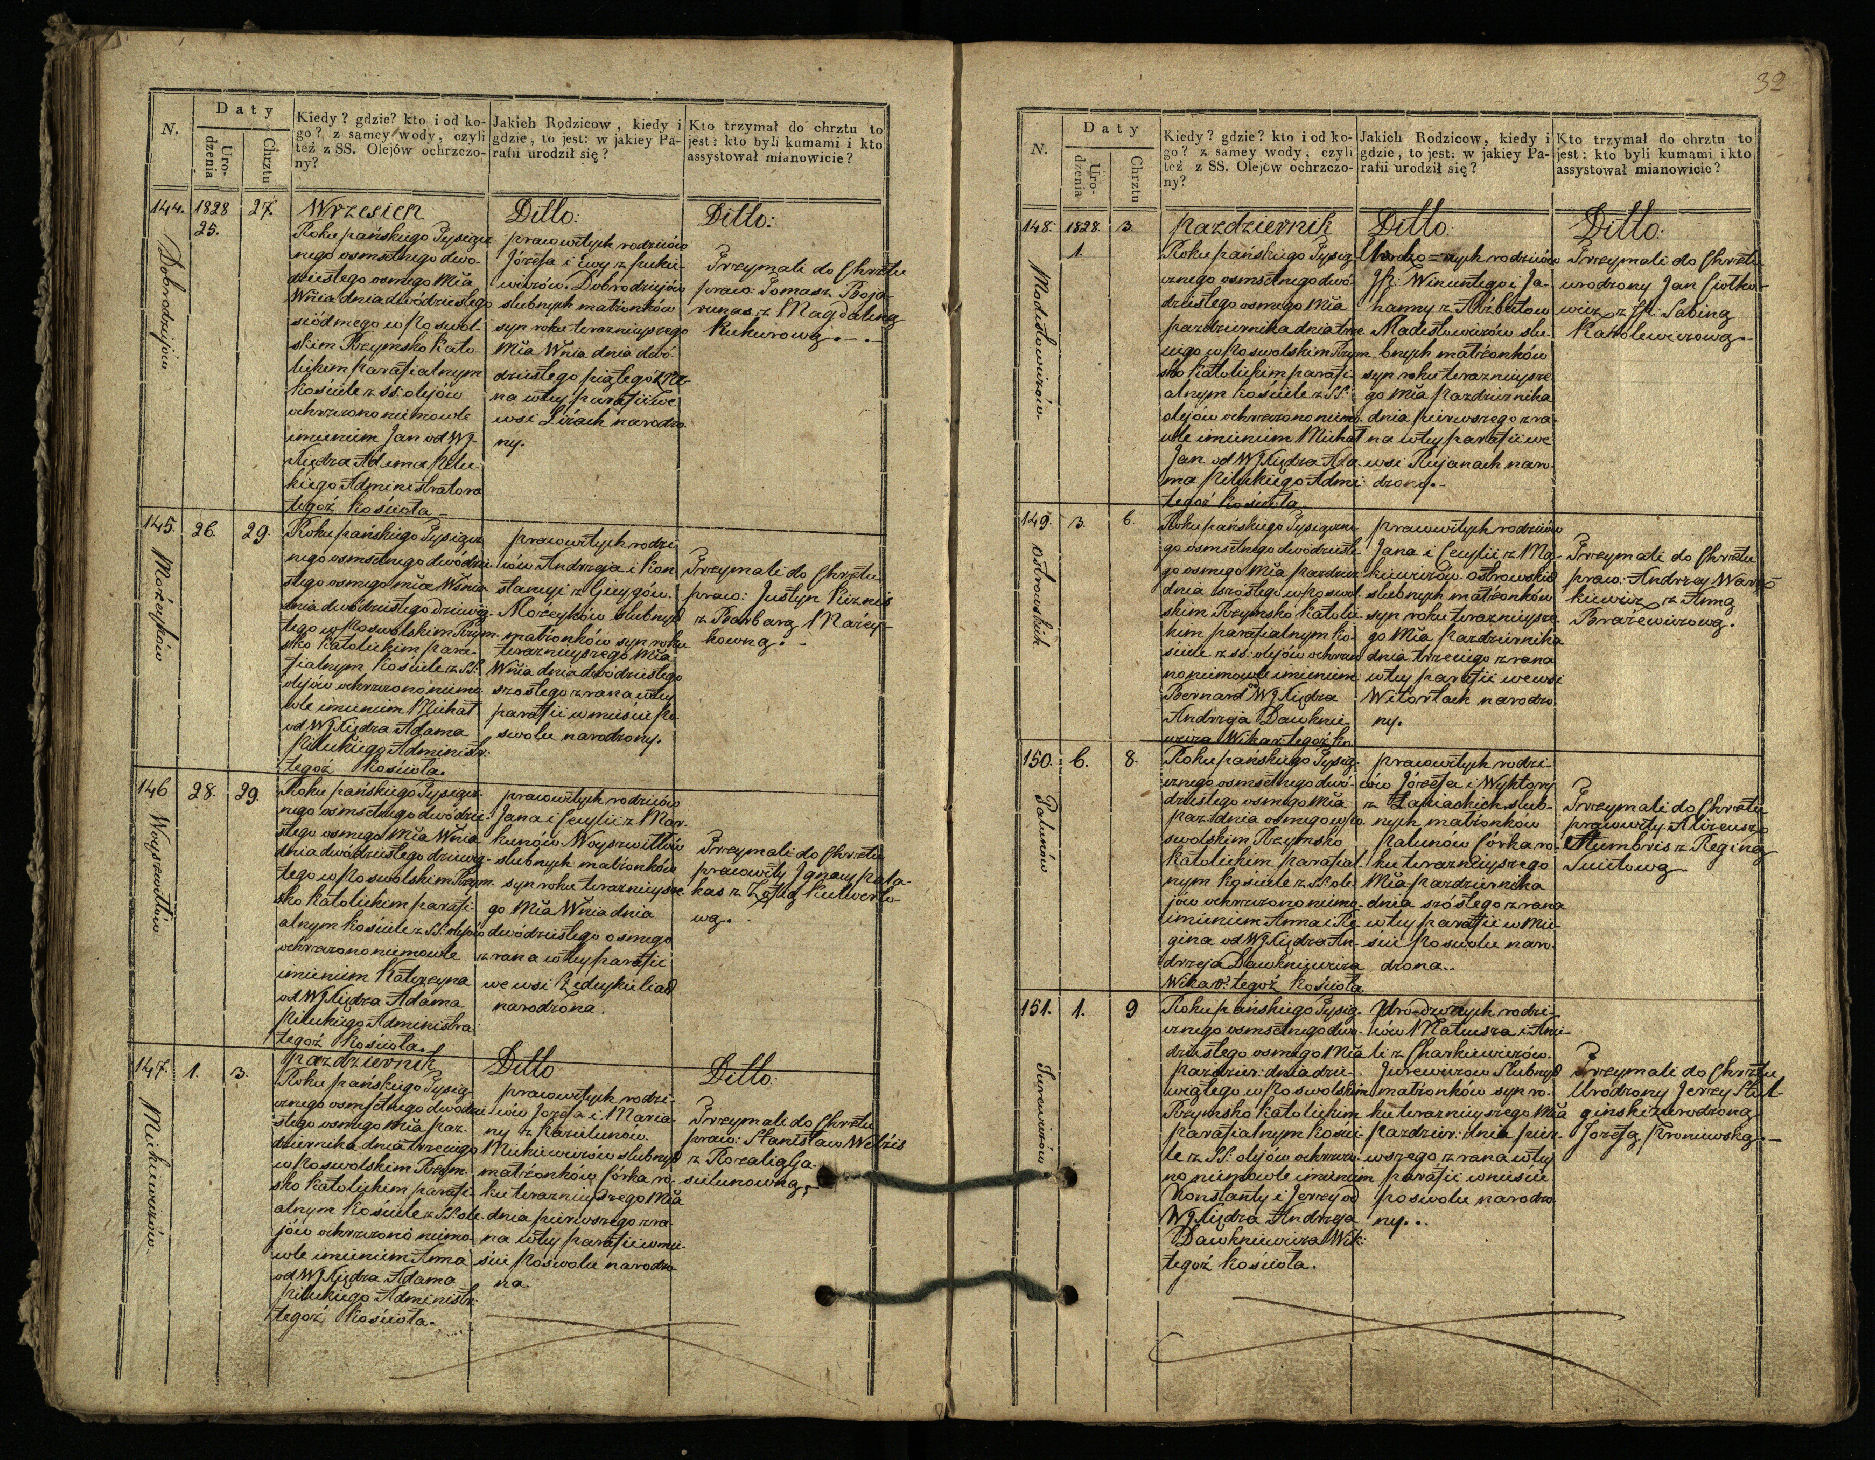 N.
Daty
Uro-
dzenia
Chrztu
Kiedy? gdzie? kto i od ko-
go? z samey wody, czyli
też z SS. Olejów ochrzczo-
ny?
Jakich Rodzicow, kiedy i
gdzie, to jest: w jakiey Pa-
rafii urodził się?
Kto trzymał do chrztu to
jest: kto byli kumami i kto
assystował mianowicie?
144.
1828
25.
27.
Dobrodziejów
Wrzesień
Roku pańskiego Tysiącz
nego osmsetnego dwó-
dziestego osmego Mĩa
Wnia dnia dwódziestego
siódmego w Poswol-
skim Rzymsko Kato
lickim Parafialnym
Kościele z SS. olejów
ochrzczono niemowle
imieniem Jan od WJ.
Xiędza Adama Piłec-
kiego Administratora
tegoż Kościoła
Ditto:
pracowitych rodziców
Józefa i Ewy z
Dobrodziejów
ślubnych małżonków
syn roku teraznieyszego
Mĩa Wnia dnia dwó-
dziestego piątego z ra-
na w tey parafii we
wsi narodzo
ny.
Ditto:
Trzymali do Chrztu
praco: Tomasz
z Magdaleną
145.
26.
29.
Możeyków
Roku pańskiego Tysiącz
nego osmsetnego dwódzie
stego osmego mĩa Wńnia
dnia dwódziestego dziewią-
tego w Poswolskim Rzym
sko Katolickim para-
fialnym Kościele z SS.
olejów ochrzczono niemo
wle imieniem Michał
od WJ Xiędza Adama
Piłeckiego Administr:
tegoż Kościoła.
pracowitych rodzi
ców Andrzeja i Kon
stancyi z
Możeyków ślubnych
małżonków syn roku
teraznieyszego Mĩa
Wnia dnia dwódziestego
szostego z rana w tey
parafii w mieście Po
swolu narodzony.
Trzymali do Chrztu
praco: Justyn
z Barbarą
146
28.
29.
Woyszwiłłów
Roku pańskiego Tysiącz-
nego osmsetnego dwódzie-
stego osmego Mĩa Wnia
dnia dwódziestego dziewią-
tego w Poswolskim Rzym
sko Katolickim parafi-
alnym Kościele z SS. olejów
ochrzczono niemowle
imieniem Katarzyna
od WJ Xiędza Adama
Piłeckiego Administra
tegoż Kościoła.
pracowitych rodziców
Jana i Cecylii z Mor-
kunów Woyszwiłłów
ślubnych małżonków
syn roku teraznieysze
go Mĩa Wnia dnia
dwódziestego osmego
z rana w tey parafii
we wsi
narodzona.
Trzymali do Chrztu
pracowity Ignacy
z Zofią
147.
1.
3.
Mickiewiczów
październik
Roku pańskiego Tysią-
cznego osmsetnego dwódzie
stego osmego Mĩa paz-
dziernika dnia trzeciego
w Poswolskim Rzym-
sko Katolickim parafi-
alnym Kościele z SS. ole-
jów ochrzczono niemo
wle imieniem Anna
od WJ Xiędza Adama
Piłeckiego Administr:
tegoż Kościoła.
Ditto
pracowitych rodzi-
ców Józefa i Maria-
ny z
Mickiewiczów ślubnych
małżonków córka ro-
ku teraznieyszego Mĩa
dnia pierwszego z ra-
na w tey parafii w mie-
ście Poswolu narodzo
na.
Ditto:
Trzymali do Chrztu
praco: Stanisław
z Rozalią
32
N.
Daty
Uro-
dzenia
Chrztu
Kiedy? gdzie? kto i od ko-
go? z samey wody, czyli
też z SS. Olejów ochrzczo-
ny?
Jakich Rodzicow, kiedy i
gdzie, to jest: w jakiey Pa-
rafii urodził się?
Kto trzymał do chrztu to
jest: kto byli kumami i kto
assystował mianowicie?
148.
1828.
1.
3.
Modestowiczów
październik
Roku pańskiego Tysią-
cznego osmsetnego dwó-
dziestego osmego Mĩa
pazdziernika dnia trze
ciego w Poswolskim Rzym
sko Katolickim parafi-
alnym Kościele z SS.
olejów ochrzczono niemo
wle imieniem Michał
Jan od WJ Xiędza Ada-
ma Piłeckiego Admi-
tegoż Kościoła
Ditto
rodziców
Wincentego i Jo-
hanny z
Modestowiczów ślu-
bnych małżonków
syn roku teraznieysze
go Mĩa Pazdziernika
dnia pierwszego z ra-
na w tey parafii we
wsi naro-
dzony.
Ditto:
Trzymali do Chrztu
urodzony Jan
z Sabiną
Karolewiczową.
149.
3.
6.
Ostrowskich
Roku pańskiego Tysiączne
go osmsetnego dwódzieste
go osmego Mĩa pazdzier
dnia szóstego w Poswol
skim Rzymsko Katolic
kim parafialnym Ko-
ściele z SS. olejów ochrzczo
no niemowle imieniem
Bernard od WJ Xiędza
Andrzeja Dawknie-
wicza Wikar: tegoż Ko
pracowitych rodziców
Jana i Cecylii z
Ostrowskich
ślubnych małżonków
syn roku teraznieysze
go Mĩa Pazdziernika
dnia trzeciego z rana
w tey parafii we wsi
narodzo
ny.
Trzymali do Chrztu
praco: Andrzey
z Anną
150.
6.
8.
Patunów
Roku pańskiego Tysią-
cznego osmsetnego dwó-
dziestego osmego Mĩa
paz: dnia osmego w Po
swolskim Rzymsko
Katolickim parafial-
nym Kościele z SS. ole-
jów ochrzczono niemo-
imieniem Anna i Re
gina od WJ Xiędza An-
drzeja Dawkniewicza
Wikar: tegoż Kościoła
pracowitych rodzi-
ców Józefa i Wyktoryi
z ślub-
nych małżonków
Patunów córka ro-
ku teraznieyszego
Mĩa pazdziernika
dnia szóstego z rana
w tey parafii w Mie-
ście Poswolu naro-
dzona..
Trzymali do Chrztu
pracowity
z Reginą
151.
1.
9
Jurewiczów
Roku pańskiego Tysią-
cznego osmsetnego dwó-
dziestego osmego Mĩa
Pazdzier: dnia dzie-
wiątego w Poswolskim
Rzymsko Katolickim
Parafialnym Kości-
le z SS. olejów ochrzczo-
no niemowle imieniem
Konstanty i Jerzy od
WJ Xiędza Andrzeja
Dawkniewicza Wik:
tegoż Kościoła.
Urodzonych rodzi-
ców Mateusza i Ane-
li z Charkiewiczów
Jurewiczów ślubnych
małżonków syn ro-
ku teraznieyszego Mĩa
Pazdzier: dnia pier-
wszego z rana w tey
parafii w mieście
Poswolu narodzo
ny...
Trzymali do Chrztu
Urodzony Jerzy
z urodzoną
Józefą